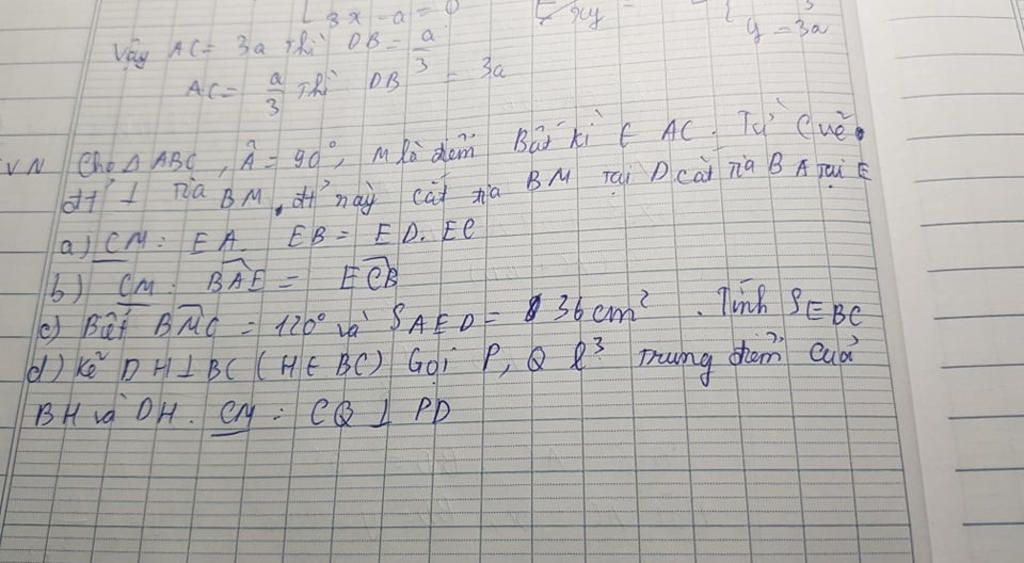 3x - a = 0
Vậy AC = 3a thì DB = a/3 y = 3a
AC = a/3 thì DB = 3a
VN Cho Δ ABC, Â = 90°, M là điểm Bất kì ∈ AC. Từ C vẽ
đt ⊥ tia BM, đt này cắt tia BM tại D cắt tia BA tại E
a) CM: EA. EB = ED. EC
b) CM: BAE = ECB
c) Biết BMC = 120° và S AED = 36 cm². Tính S EBC
d) Kẻ DH ⊥ BC (H ∈ BC) Gọi P, Q l³ trung điểm của
BH và DH. CM: CQ ⊥ PD